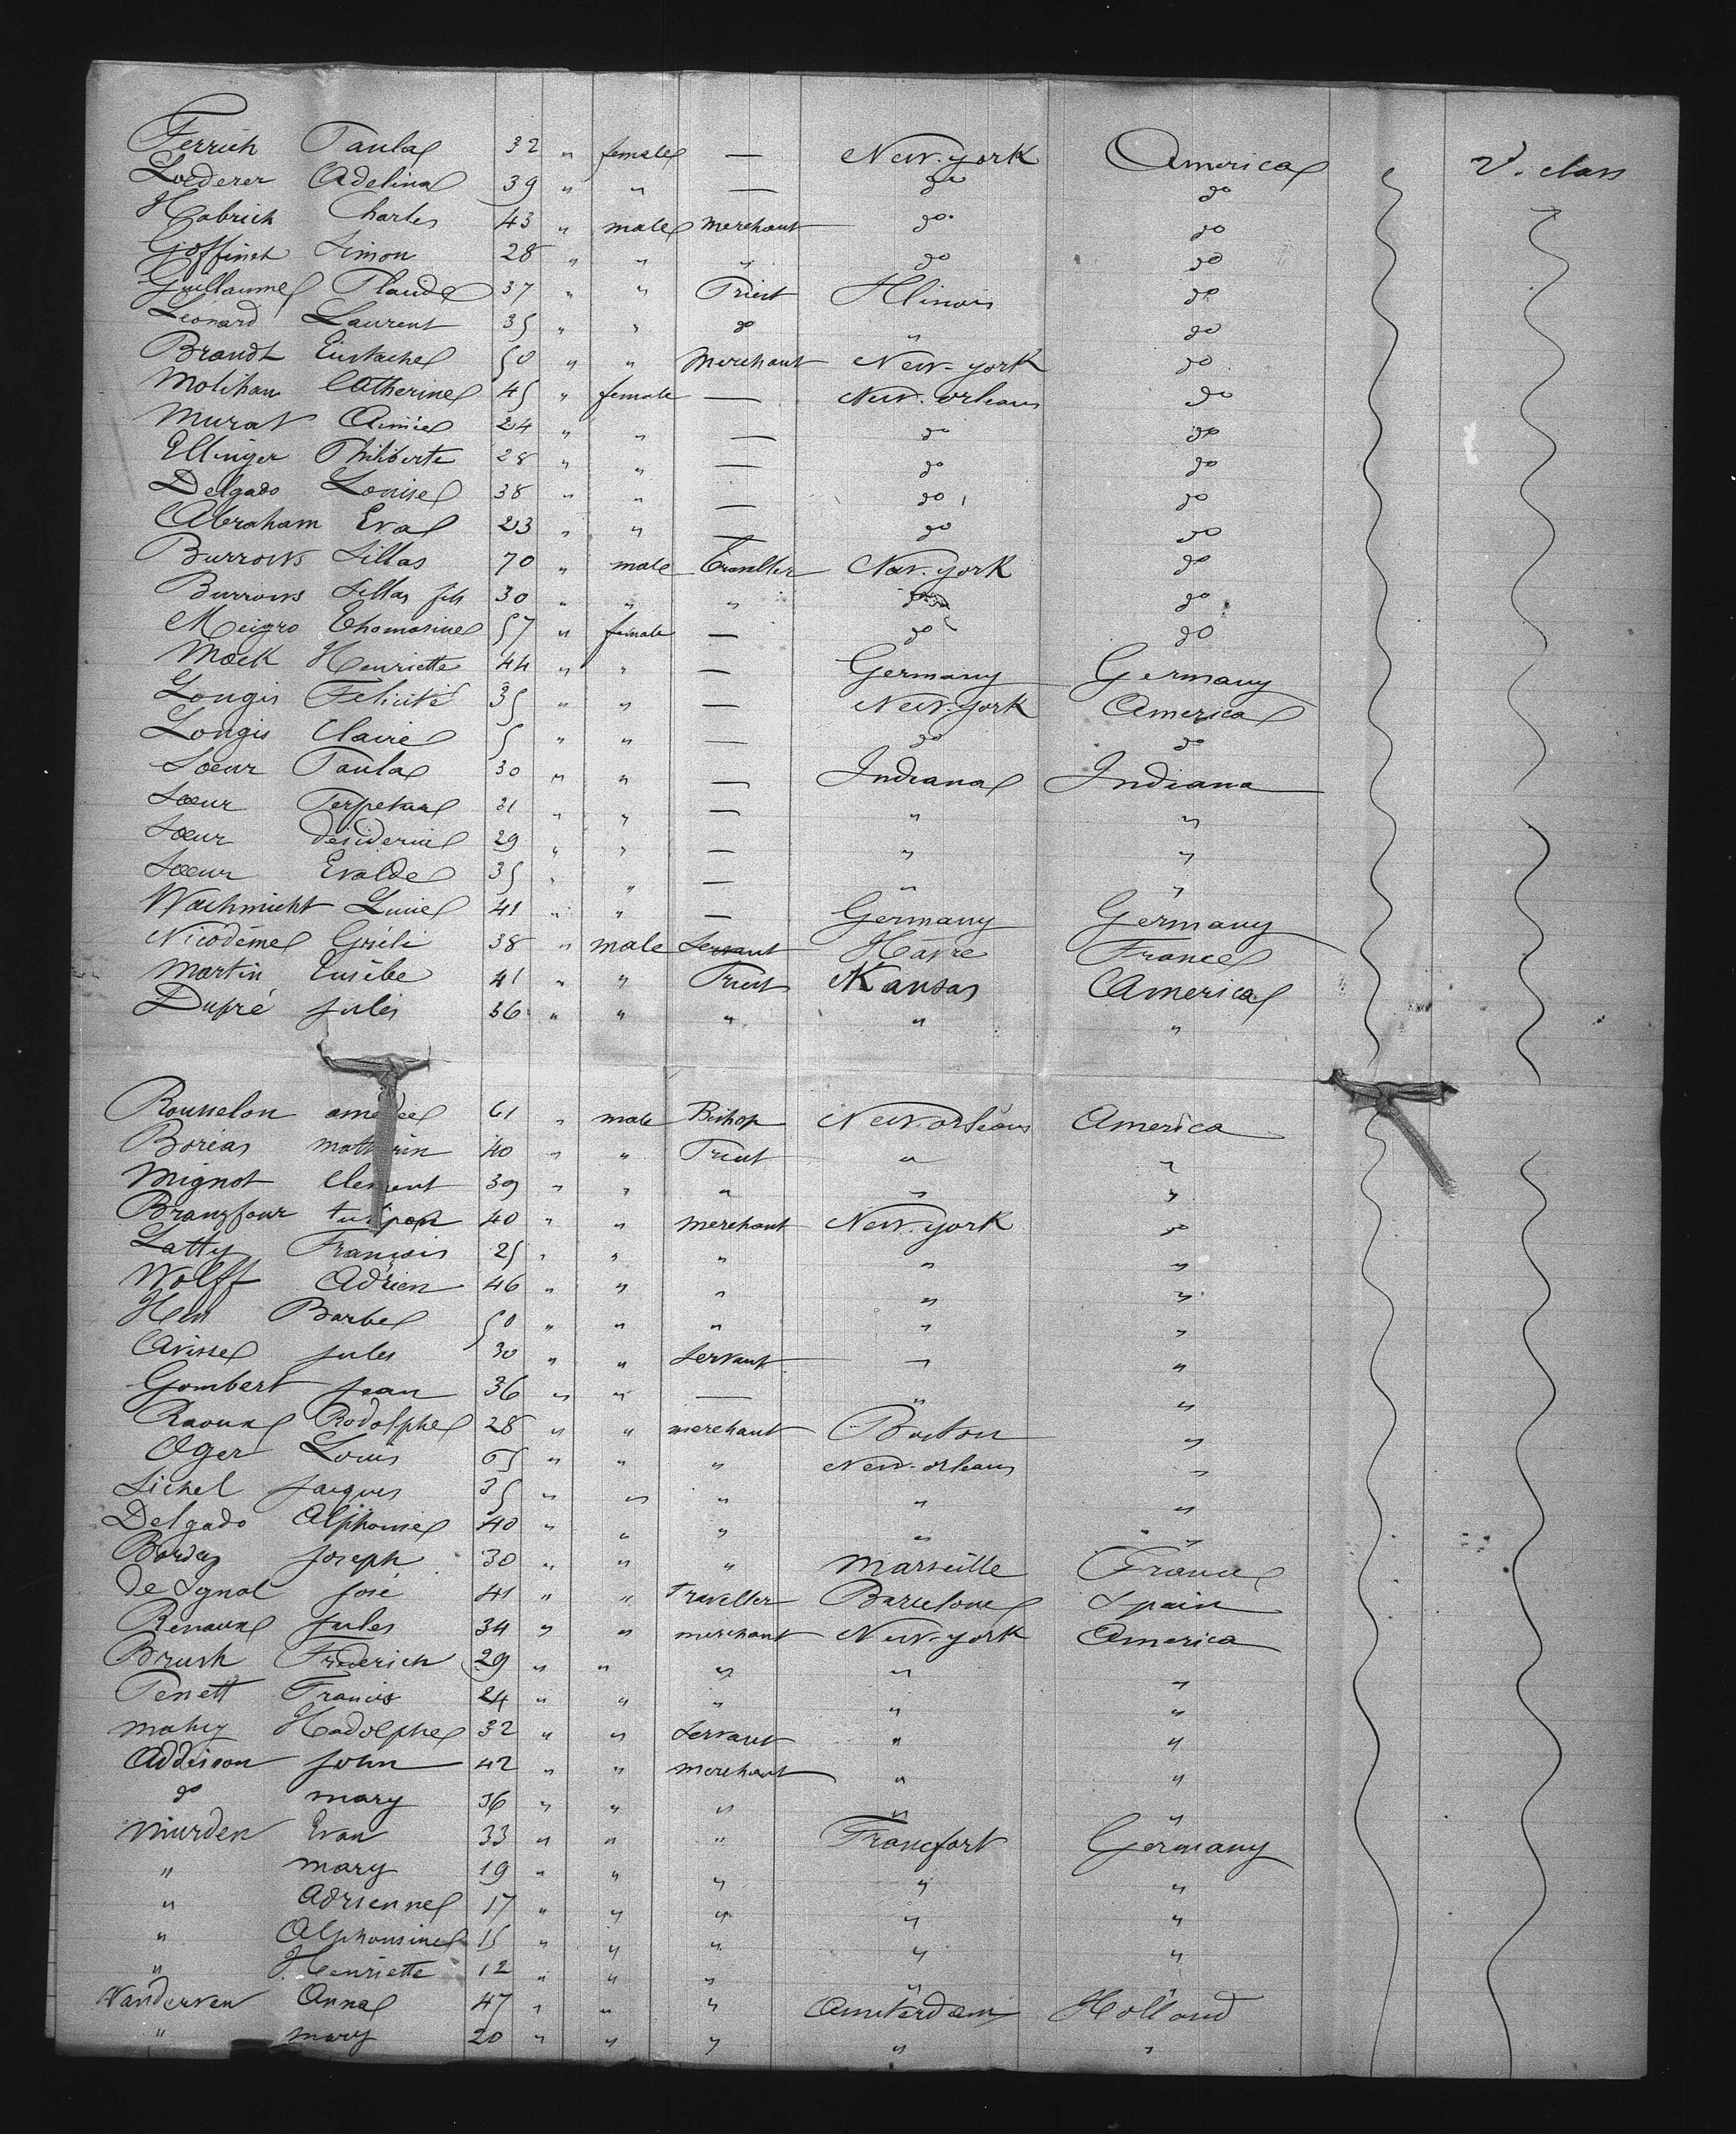 Ferrich Paula 32 " female — New-york America 2. class
Loederer Adelina 39 " " — do do
Habrich Charles 43 " male merchant do do
Goffinet Simon 28 " " " do do
Guillaume Plaude 37 " " Priest Illinois do
Leonard Laurent 35 " " do " do
Brandt Eustache 50 " " merchant New-york do
Molihan Catherine 45 " female — New-orleans do
Murat Aimée 24 " " — do do
Ellinger Philiberte 28 " " — do do
Delgado Louise 38 " " — do do
Abraham Eva 23 " " — do do
Burrows Sillas 70 " male Traveller New-york do
Burrows Sillas fils 30 " " " do do
Meigro Thomasine 57 " female — do do
Mock Henriette 44 " " — Germany Germany
Longis Felicité 35 " " — New-york America
Longis Claire 5 " " — do do
Soeur Paula 30 " " — Indiana Indiana
Soeur Perpetua 31 " " — " "
Soeur désideria 29 " " — " "
Soeur Evalde 35 " " — " "
Wachmicht Lucie 41 " " — Germany Germany
Nicodéme 38 " male Servant Havre France
Martin Eusèbe 41 " " Priest Kansas America
Dupré jules 36 " " " " "
Rousselon amedee 61 " male Bishop New orleans America
Boréas mathurin 40 " " Priest " "
Mignot Clement 39 " " " " "
Branzfour 40 " " merchant New-york do
Latty François 25 " " " " "
Wolff Adrien 46 " " " " "
Hen Barbe 50 " " " " "
Avisse jules 30 " " Servant " "
Gombert jean 36 " " — " "
Raoux Rodolphe 28 " " merchant Boston "
Oger Louis 65 " " " New-orleans "
Sichel jacques 35 " " " " "
Delgado Alphonse 40 " " " " "
Bordes joseph 30 " " " Marseille France
de Signol josé 41 " " Traveller Barcelone Spain
Renaux jules 34 " " merchant New-york America
Brush Frederich 29 " " " " "
Penett Francis 24 " " " " "
mahey Hadolphe 32 " " Servant " "
Addison john 42 " " merchant " "
do mary 36 " " " " "
Murden Evan 33 " " " Francfort Germany
" mary 19 " " " " "
" Adrienne 17 " " " " "
" Alphonsine 15 " " " " "
" Henriette 12 " " " " "
Vanderven Anna 47 " " " Amsterdam Holland
" mary 20 " " " " "